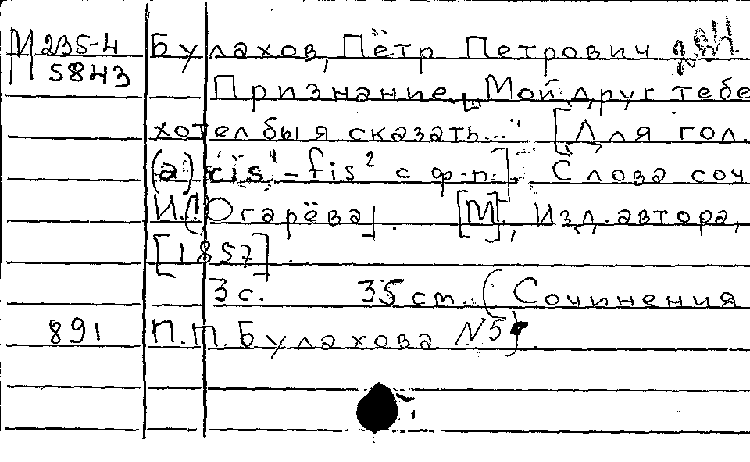 М 235-4 Булахов, Пётр Петрович
5843 Признание. „Мой друг тебе
хотел бы я сказать..." [Для гол.
(а) cis¹-fis² с ф-п.]. Слова соч
И. Огарёва]. [М], Изд. автора,
[1857]
3 с. 35 cm. (Сочинения
891 П.П. Булахова N5).